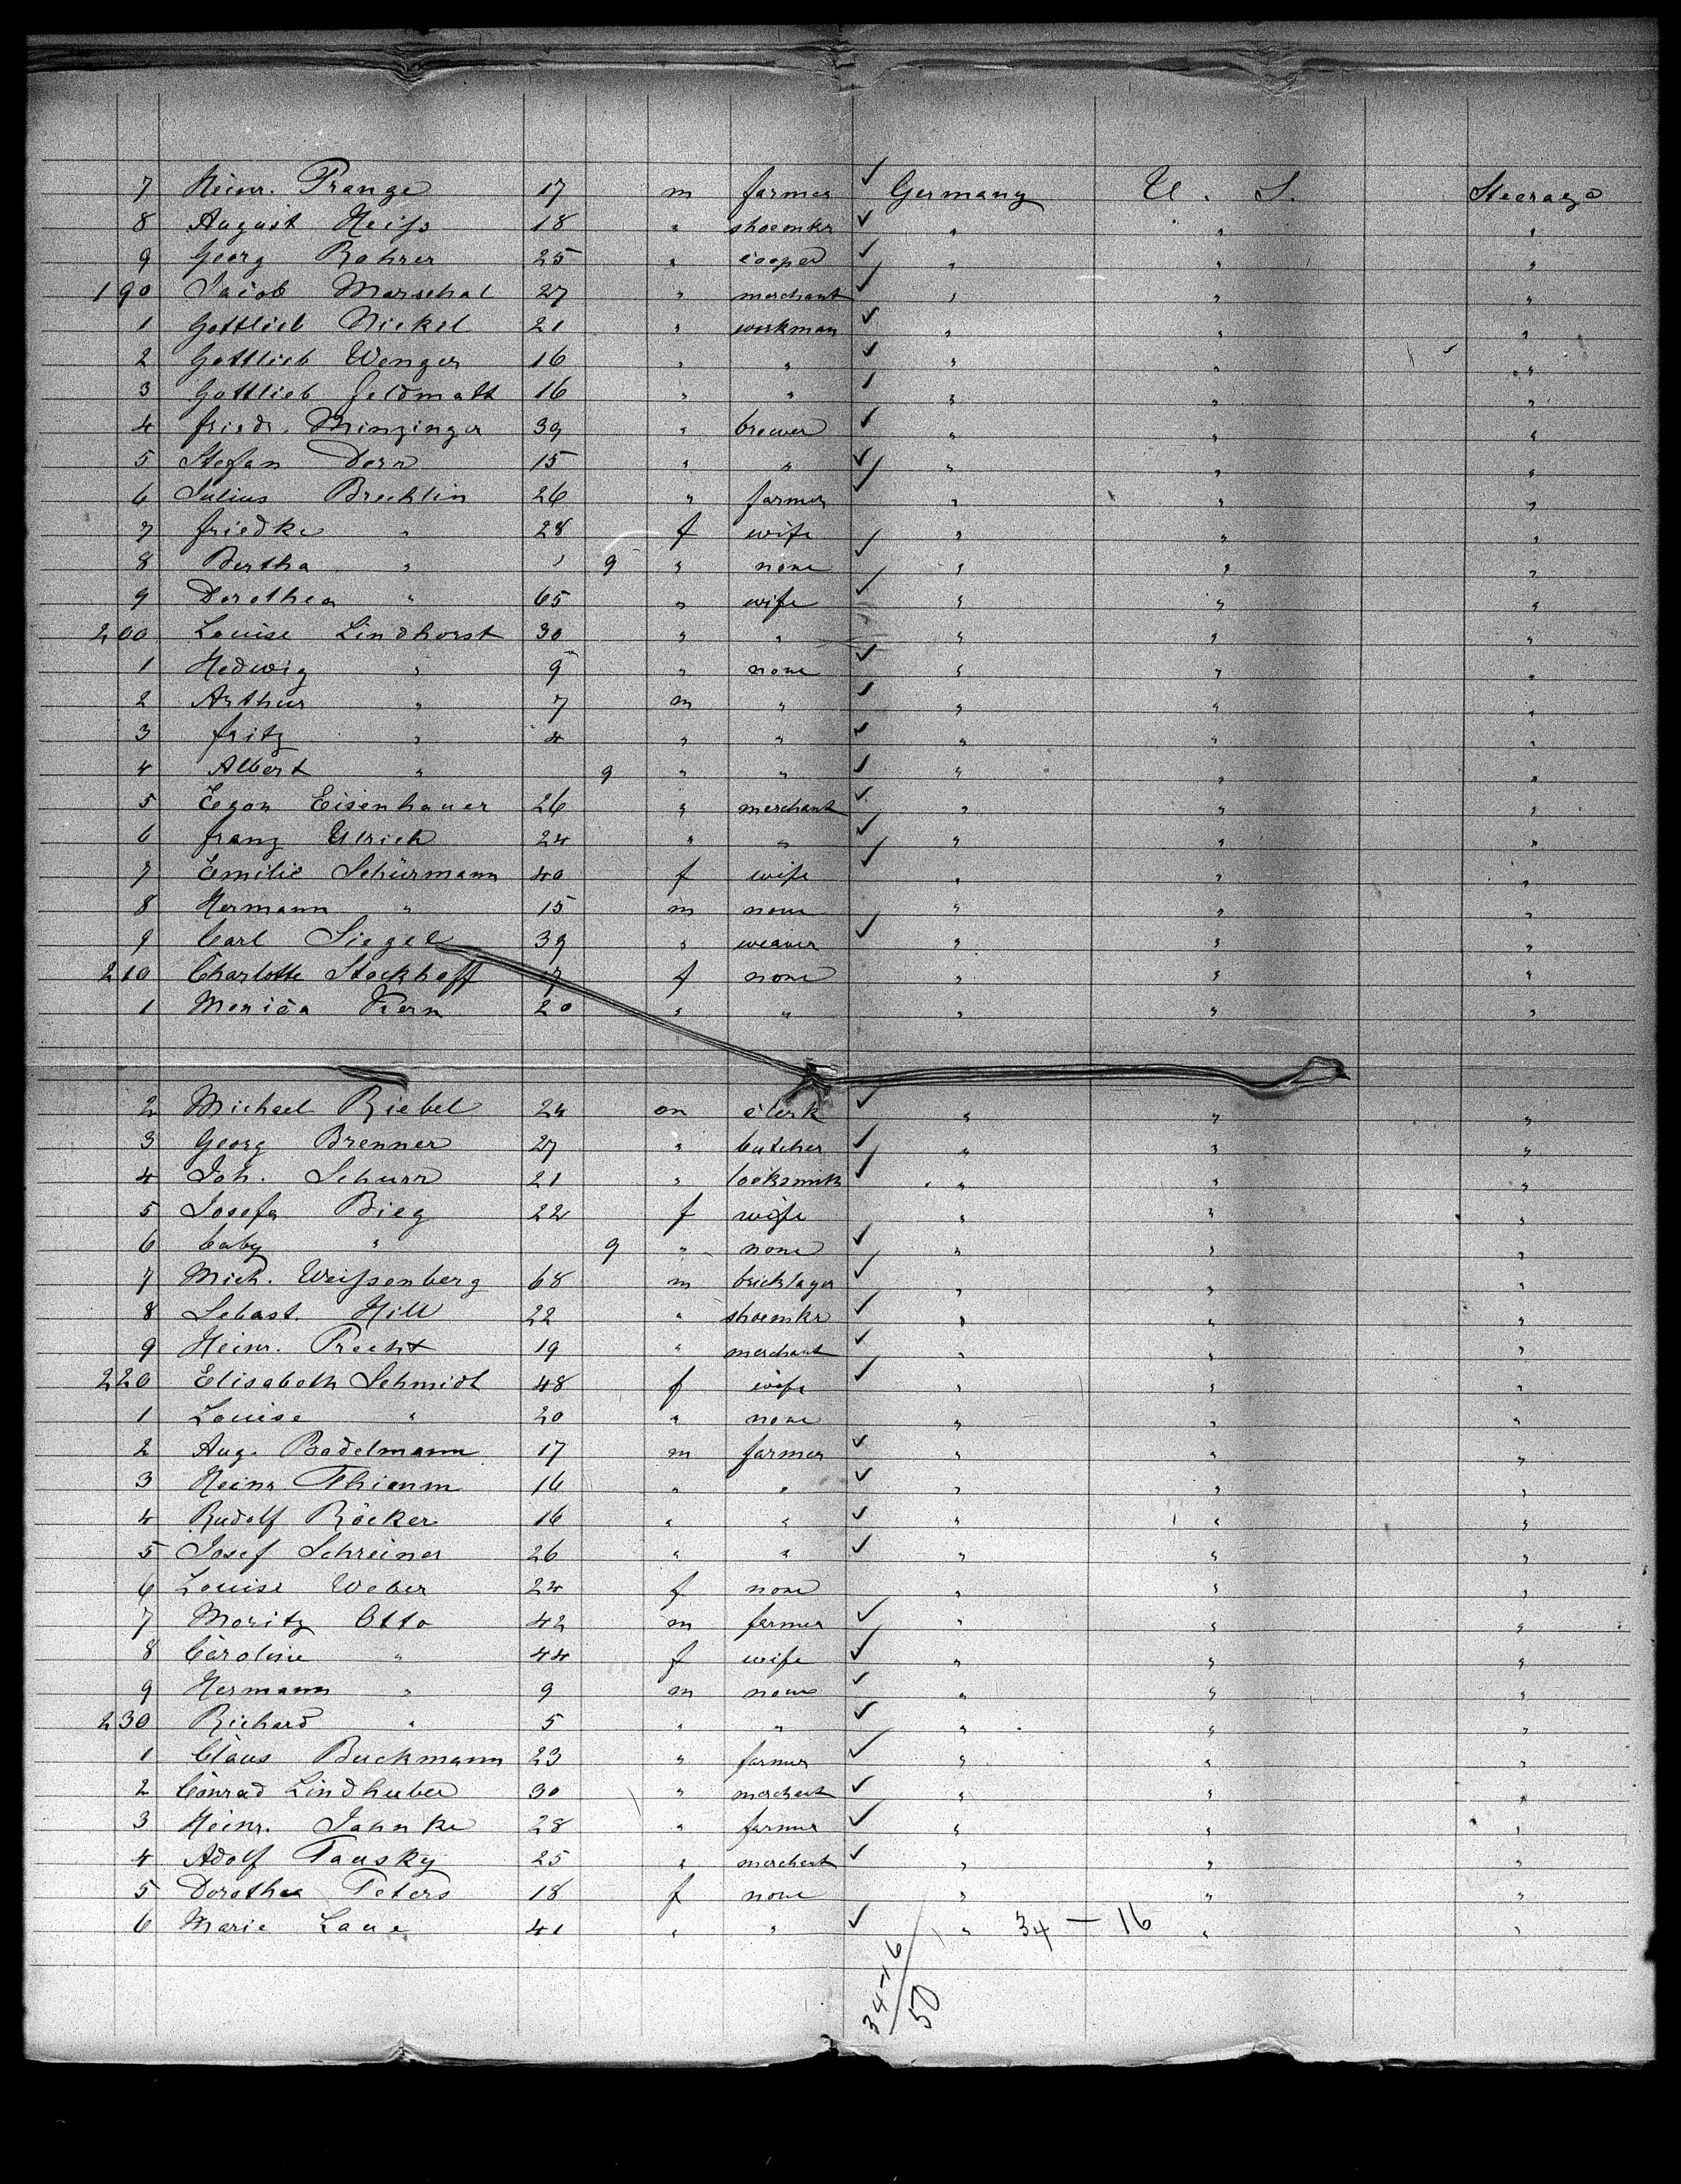 7 Heinr. Prange 17 m farmer ✓ Germany U. S. Steerage
8 August Heiß 18 " shoemkr ✓ " " "
9 Georg Rohrer 25 " cooper ✓ " " "
190 Jacob Marschal 27 " merchant ✓ " " "
1 Gottlieb Nickel 21 " workman ✓ " " "
2 Gottlieb Wenger 16 " " ✓ " " "
3 Gottlieb Feldmatt 16 " " ✓ " " "
4 Friedr. Minzinger 39 " brewer ✓ " " "
5 Stefan Dorn 15 " " ✓ " " "
6 Julius Brechlin 26 " farmer ✓ " " "
7 Friedke " 28 f wife " " "
8 Bertha " " 9 " none ✓ " " "
9 Dorothea " 65 " wife ✓ " " "
200 Louise Lindhorst 30 " " " " "
1 Hedwig " 9 " none ✓ " " "
2 Arthur " 7 m " ✓ " " "
3 Fritz " 4 " " ✓ " " "
4 Albert " 9 " " ✓ " " "
5 Egon Eisenhauer 26 " merchant ✓ " " "
6 Franz Ulrich 24 " " ✓ " " "
7 Emilie Schürmann 40 f wife ✓ " " "
8 Hermann " 15 m none " " "
9 Carl Siegel 39 " weaver ✓ " " "
210 Charlotte Stockhoff 7 f none " " "
1 Monica Kern 20 " " " " "
2 Michael Riebel 24 m clerk ✓ " " "
3 Georg Brenner 27 " butcher ✓ " " "
4 Joh. Schurr 21 " locksmith ✓ " " "
5 Josefa Bieg 22 f wife " " "
6 baby " 9 " none ✓ " " "
7 Mich. Weißenberg 68 m bricklayer ✓ " " "
8 Sebast. Hill 22 " shoemkr ✓ " " "
9 Heinr. Precht 19 " merchant ✓ " " "
220 Elisabeth Schmidt 48 f wife ✓ " " "
1 Louise " 20 " none " " "
2 Aug. Badelmann 17 m farmer ✓ " " "
3 Heinr Thiemm 16 " " ✓ " " "
4 Rudolf Röcker 16 " " ✓ " " "
5 Josef Schreiner 26 " " ✓ " " "
6 Louise Weber 24 f none " " "
7 Moritz Otto 42 m farmer ✓ " " "
8 Caroline " 44 f wife ✓ " " "
9 Hermann " 9 m none ✓ " " "
230 Richard " 5 " " ✓ " " "
1 Claus Buckmann 23 " farmer ✓ " " "
2 Conrad Lindhuber 30 " merchant ✓ " " "
3 Heinr. Jahnke 28 " farmer ✓ " " "
4 Adolf Tausky 25 " merchant ✓ " " "
5 Dorothea Peters 18 f none " " "
6 Marie Laue 41 " " ✓ " 34 – 16 " "
34–16
50